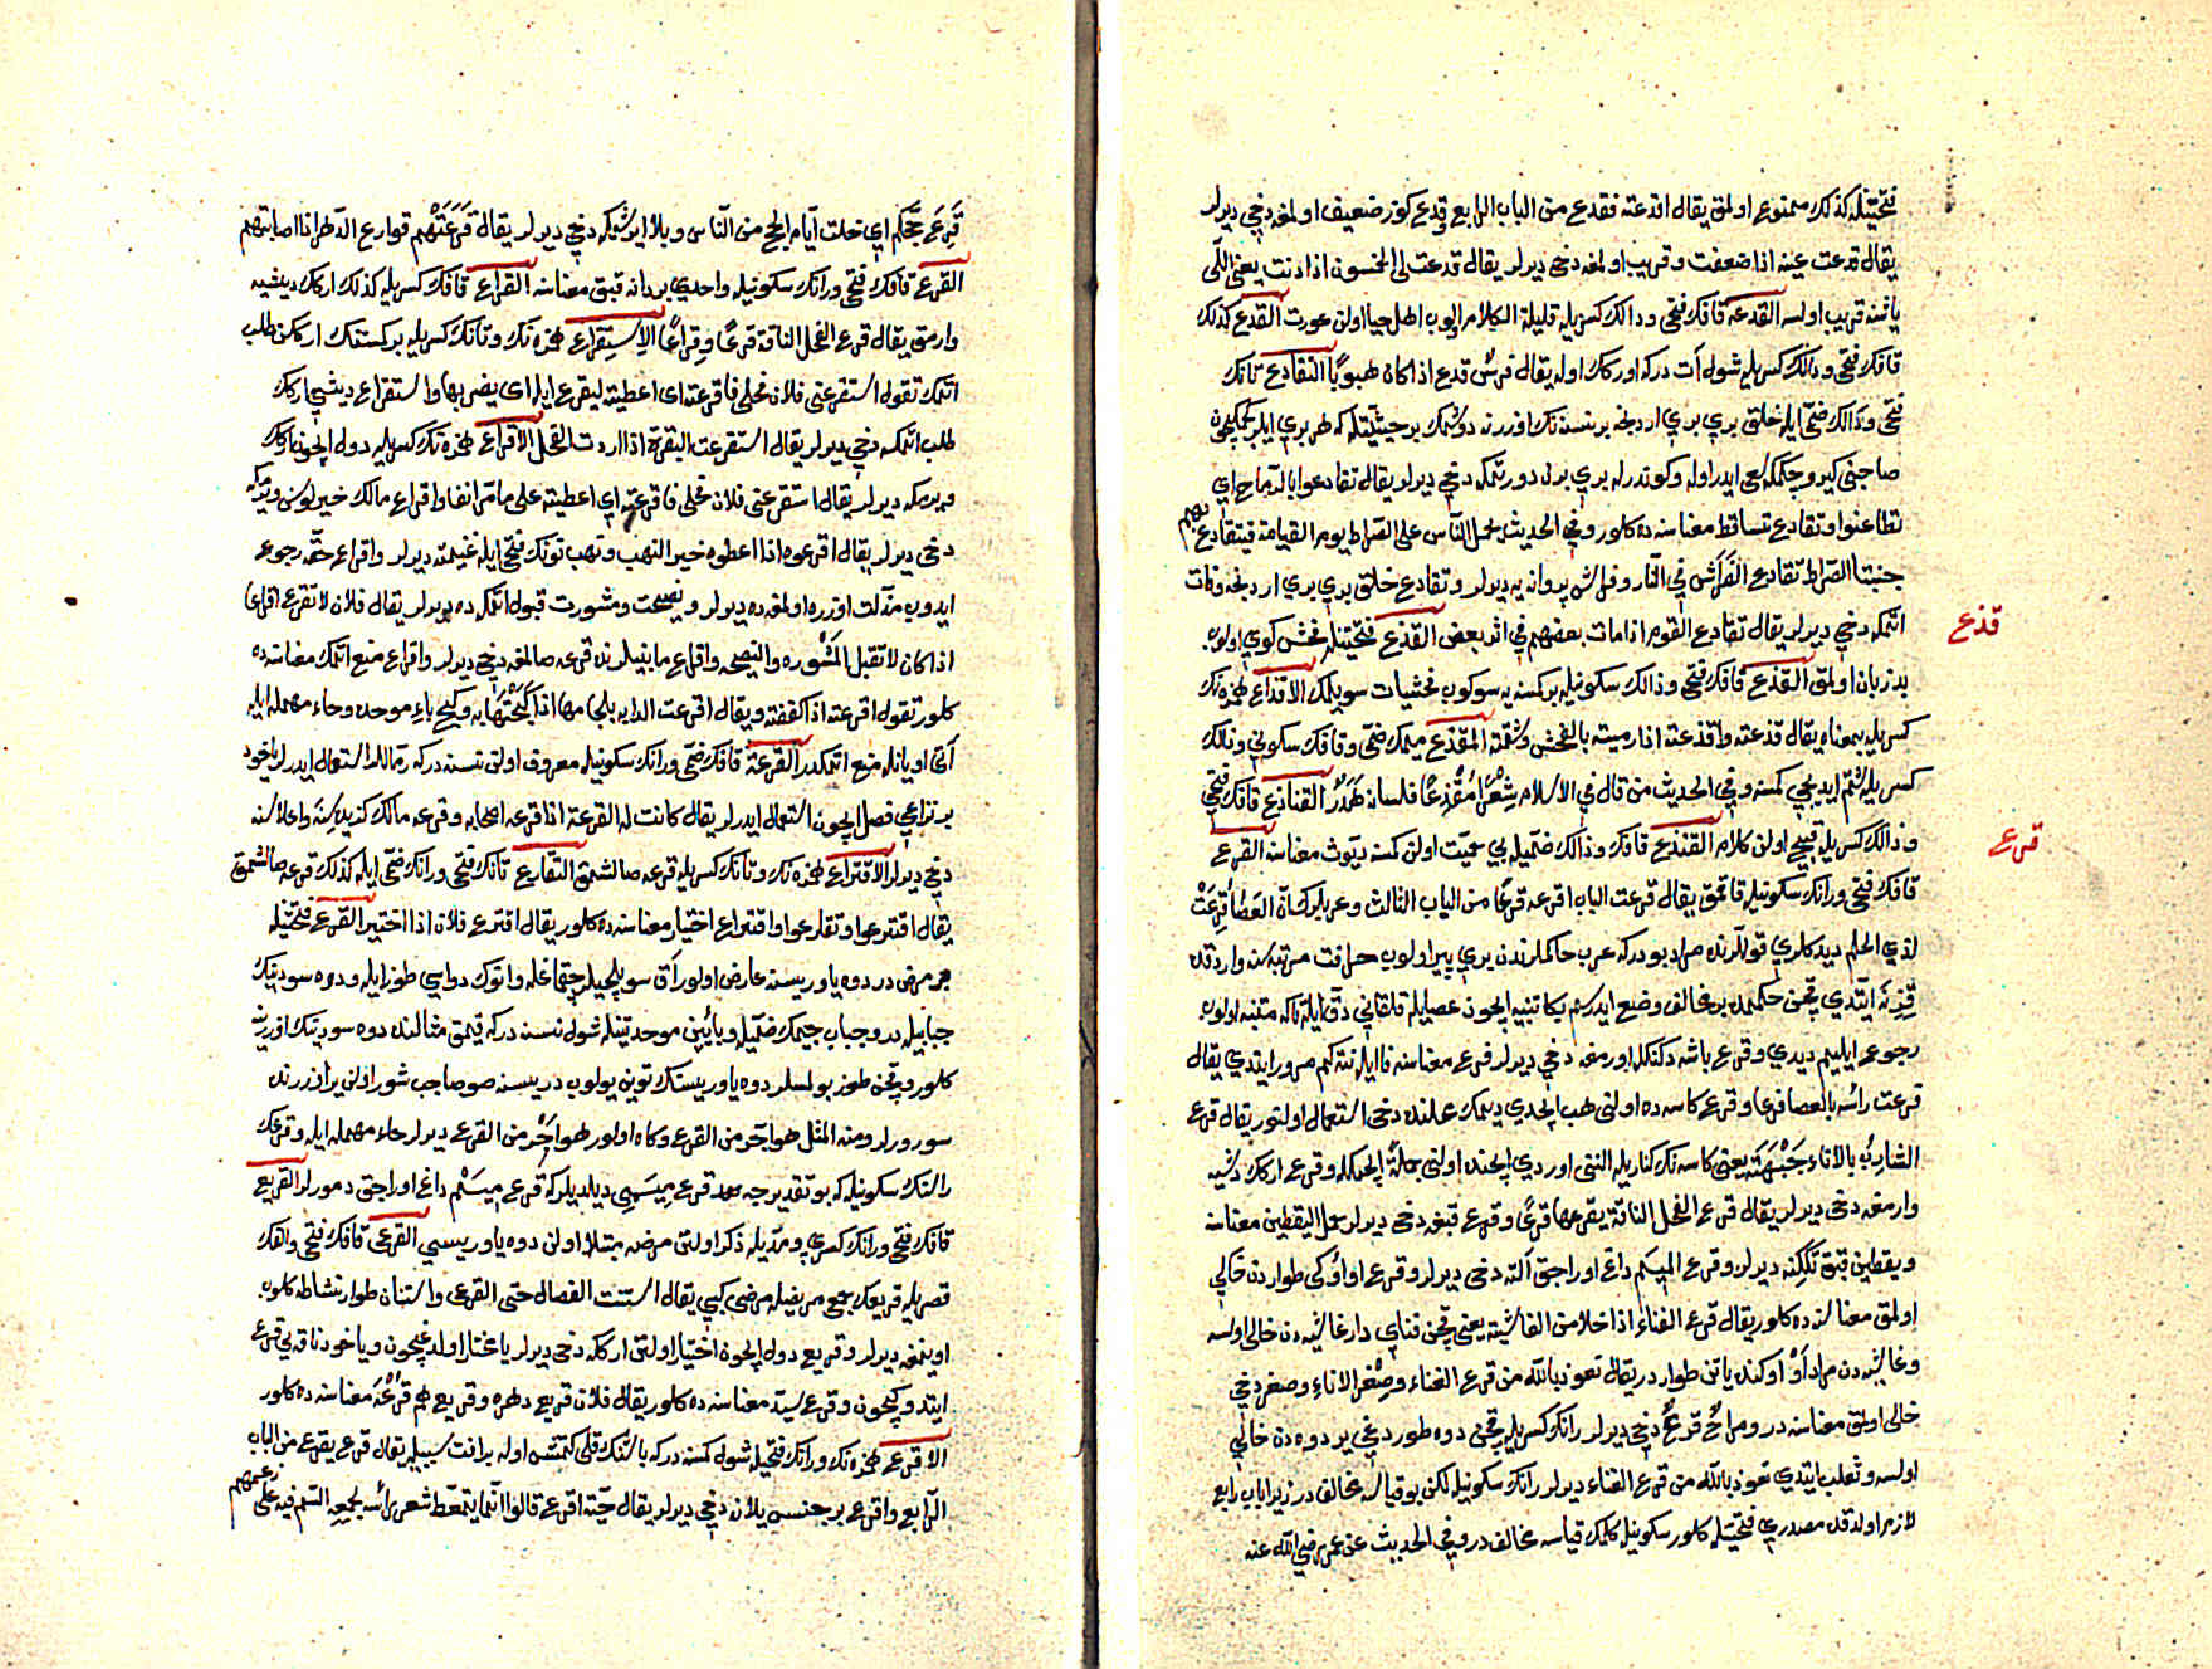 فتحتيله كذلك ممنوع اولمق يقال اقدعته فقدع من الباب الرابع وقدع كوز ضعيف اولمغه دخي ديرلر
يقال قدعت عينه اذا ضعفت وقريب اولمغه دخي ديرلر يقال قدعت لي الخمسون اذا دنت يعني اللّى
ياشنه قريب اولسه القدعة قافك فتحى ودالك كسريله قليلة الكلام اولوب اهل حيا اولن عورت القدع كذلك
قافك فتحى ودالك كسريله شول آت دركه اوركك اوله يقال فرسٌ قدع اذا كان هبوبًا التقادع تانك
فتحى ودالك ضمّى ايله خلق بري بري اردنجه برنسنه نك اوزرنه دوشمك بر حيثيتله كه هر بري ايلر كچمكيچون
صاحبنى كيرو چكمكه سعى ايدر اوله وكوندرله بري برن دورتمكه دخي ديرلر يقال تقادعوا بالرماح اي
تطاعنوا وتقادع تساقط معناسنه ده كلور وفي الحديث يحمل النّاس على الصّراط يوم القيامة فيتقادع بهم
جنبتا الصّراط تقادع الفَراش في النّار وفراش پروانه يه ديرلر وتقادع خلق بري بري اردنجه وفات
اتمكه دخي ديرلر يقال تقادع القوم اذا مات بعضهم في اثر بعض القذع فتحتيله فحش كوي اولوب
قذع
بدزبان اولمق القذع قافك فتحى وذالك سكونيله بر كسنه يه سوكوب فحشيات سويلمك الاقذاع همزه نك
كسريله بمعناه يقال قذعته واقذعته اذا رميته بالفحش وشتمته المقذع ميمك ضمّى وقافك سكوني وذالك
كسريله شتم ايديجي كمسنه وفي الحديث من قال في الاسلام شِعْرًا مُقْذِعًا فلسانه هَدَرٌ القناذع قافك فتحي
وذالك كسريله قبيح اولن كلام القنذع قافك وذالك ضمّيله بي حميّت اولن كمسنه ديّوث معناسنه القرع
قرع
قافك فتحى ورانك سكونيله قاقمق يقال قرعت الباب اقرعه قرعًا من الباب الثالث وعربلرك انّ العَصا قُرِعَتْ
لذي الحلم ديدكلري قوللرنده مراد بودركه عرب حاكملرندن بري پير اولوب خرافت مرتبه سنه واردقده
قِزِنَه ايتدي قچن حكممده بر مخالف وضع ايدرسم بكا تنبيه ايچون عصايله قلقاني دقّ ايله تاكه متنبه اولوب
رجوع ايليم ديدي وقرع باشه دكنكله اورمغه دخي ديرلر قرع معناسنه فا ايله نته كم مرور ايتدي يقال
قرعت رأسه بالعصا قرعا وقرع كاسه ده اولنى هب ايچدي ديمك محلنده دخي استعمال اولنور يقال قرع
الشاربُ بالاناء جَبْهَتَه يعنى كاسه نك كناريله النني اوردي ايچنده اولنى جملةً ايچمكله وقرع اركك دشيه
وارمغه دخي ديرلر يقال قرع الفحل الناقة يقرعها قرعًا وقرع قبغه دخي ديرلر حمل اليقطين معناسنه
ويقطين قبق تكّنه ديرلر وقرع الميسم داغ اوراجق آلته دخي ديرلر وقرع او اوكى طواردن خالي
اولمق معناسنه ده كلور يقال قرع الفناء اذا خلا من الغاشية يعني قچن فناي دار غاشيه دن خالى اولسه
وغاشيه دن مراد اَوْ اوكنده ياتن طواردر يقال نعوذ بالله من قرع الفناء وصِفْر الاناء وصفر دخي
خالى اولمق معناسنه در ومراحٌ قرعٌ دخي ديرلر رانك كسريله قچن دوه طوردغي ير دوه دن خالي
اولسه وثعلب ايتدي نعوذ بالله من قرع الفناء ديرلر رانك سكونيله لكن بو قياسه مخالف در زيرا باب رابع
لازم اولدقده مصدري فتحتيله كلور سكونيله كلمك قياسه مخالف در وفي الحديث عن عمر رضي الله عنه
قَرِعَ حَجُّكم اي خلت ايّام الحج من النّاس وبلا ايرشمكه دخي ديرلر يقال قَرَعَتْهُم قوارع الدّهر اذا اصابتهم
القرع قافك فتحى ورانك سكونيله واحدي بردانه قبق معناسنه القراع قافك كسريله كذلك اركك ديشيه
وارمق يقال قرع الفحل الناقة قرعًا وقِراعًا الاستِقراع همزه نك وتانك كسريله بر كسنه نك اركن طلب
اتمك تقول استقرعني فلان فحلى فاقرعته اى اعطيته ليقرع ابله اى يضربها واستقراع ديشي اركك
طلب اتمكه دخي ديرلر يقال استقرعت البقرة اذا ارادت الفحل الاقراع همزه نك كسريله دول ايچون اركك
ويرمكه ديرلر يقال استقرعني فلان فحلى فاقرعته اي اعطيته على ما مرّ انفا واقراع مالك خيرلوسن ويرمكه
دخى ديرلر يقال اقرعوه اذا اعطوه خير النهب ونهب نونك فتحى ايله غنيمته ديرلر واقراع حقّه رجوع
ايدوب مذلّت اوزره اولمغه ده ديرلر ونصيحت ومشورت قبول اتمكه ده ديرلر يقال فلان لا تقرع اقراعا
اذا كان لا تقبل المَشْوره والنصيحه واقراع مابينلرنده قرعه صالمغه دخي ديرلر واقراع منع اتمك معناسنه ده
كلور تقول اقرعته اذا كففته ويقال اقرعت الدابه بلجامها اذا كَبَحْتَهَا به وكبح باء موحده وحاء مهمله ايله
آتى اويانله منع اتمكدر القرعة قافك ضمّى ورانك سكونيله معروف اولن نسنه دركه رمّاللر استعمال ايدرلر ياخود
بر نزاعي فصل ايچون استعمال ايدرلر يقال كانت له القرعة اذا قرعه اصحابه وقرعه مالك كزيده سِنَه واعلاسنه
دخي ديرلر الاقتراع همزه نك وتانك كسريله قرعه صالشمق التقارع تانك فتحى ورانك ضمّى ايله كذلك قرعه صالشمق
يقال اقترعوا وتقارعوا واقتراع اختيار معناسنه ده كلور يقال اقترع فلان اذا اختير القرع فتحتيله
بر مرض در دوه ياوريسنه عارض اولور آق سويلجيلر چقماغله وانوك دواسي طوز ايله ودوه سودينك
جبابيله در وجباب جيمك ضمّيله وبائين موحدتينله شول نسنه دركه قيمق مثالنده دوه سودينك اوزرينه
كلور وقچن طوز بولمسلر دوه ياوريسنك توين يولوب دريسنه صو صاچب شورا اولن ير اوزرنده
سورورلر ومنه المثل هو احرّ من القرع وكاه اولور هو احَرُّ من القرع ديرلر حاء مهمله ايله وقرعك
رالنك سكونيله كه بو تقديرجه قرع مِيسَمِى ديلديلر كه قرع مِيسَمْ داغ اوراجق دمورلر القريع
قافك فتحى ورانك كسري ومدّيله ذكر اولنن مرضه مبتلا اولن دوه ياوريسي القرعى قافك فتحى والفك
قصريله قريعك جمعي مريضله مرضى كبي يقال استنّت الفصال حتى القرعى واستنان طوار نشاطه كلوب
اوينمغه ديرلر وقريع دول ايچون اختيار اولنن اركه دخي ديرلر يا مختار اولدغيچون وياخود ناقه يي قرع
ايتدوكيچون وقرع سيّد معناسنه ده كلور يقال فلان قريع دهره وقريع هم قُرْعَه معناسنه ده كلور
الاقرع همزه نك ورانك فتحيله شول كمسنه دركه باشنك قلى كتمش اوله بر آفت سببيله يقال قرع يقرع من الباب
الرّابع واقرع بر جنس ييلان دخي ديرلر يقال حيّة اقرع قالوا انّما يتمعّط شعر رأسه لجمعه السّم فيه على زعمهم